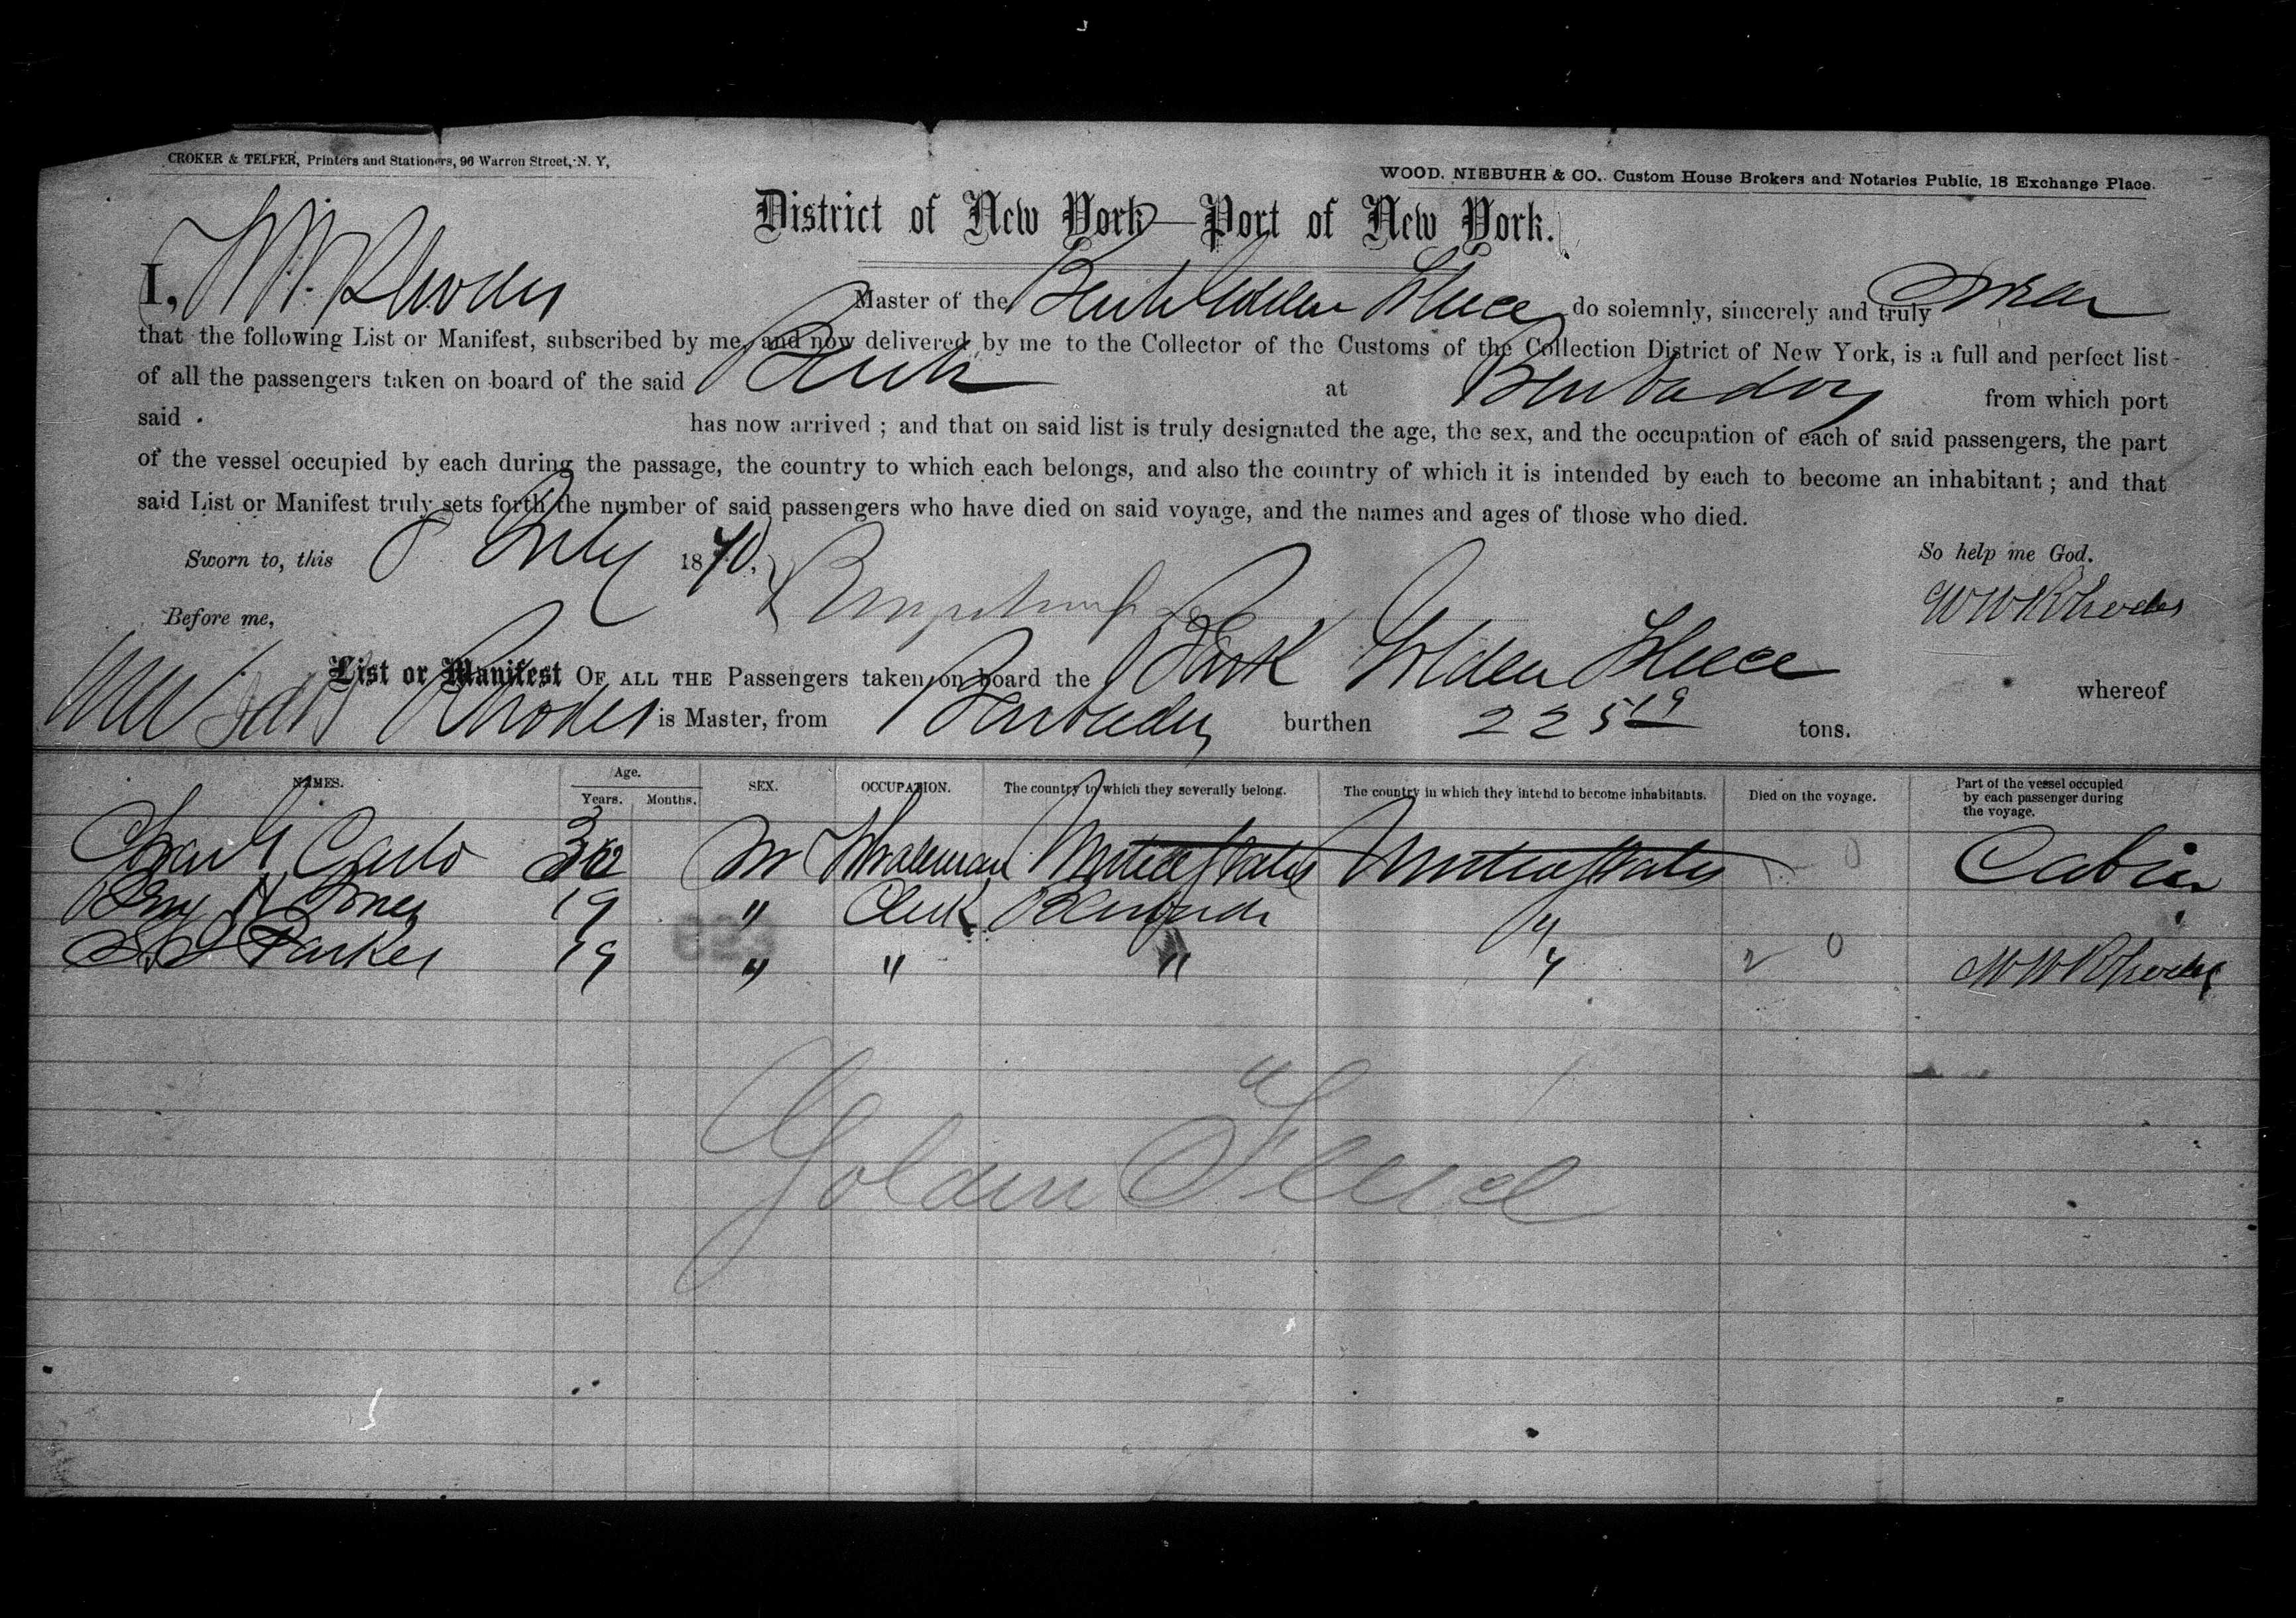 CROKER & TELFER, Printers and Stationers, 96 Warren Street, N. Y,
WOOD, NIEBUHR & CO. Custom House Brokers and Notaries Public, 18 Exchange Place.
District of New York—Port of New York.
I, W W Rhodes Master of the Bark Golden Fleece do solemnly, sincerely and truly swear
that the following List or Manifest, subscribed by me, and now delivered by me to the Collector of the Customs of the Collection District of New York, is a full and perfect list
of all the passengers taken on board of the said Bark at Barbados from which port
said has now arrived ; and that on said list is truly designated the age, the sex, and the occupation of each of said passengers, the part
of the vessel occupied by each during the passage, the country to which each belongs, and also the country of which it is intended by each to become an inhabitant ; and that
said List or Manifest truly sets forth the number of said passengers who have died on said voyage, and the names and ages of those who died.
Sworn to, this July 1870, So help me God.
W W Rhodes
Before me,
List or Manifest OF ALL THE Passengers taken on board the Bark Golden Fleece whereof
Rhodes is Master, from Barbados burthen 225 19 tons.
NAMES. Age. Years. Months. SEX. OCCUPATION. The country to which they severally belong. The country in which they intend to become inhabitants. Died on the voyage. Part of the vessel occupied by each passenger during the voyage.
M Whaleman United States United States 0 Cabin
Jones 19 " Clerk "
Parker 19 " " " " 0 W W Rhodes
Golden Fleece